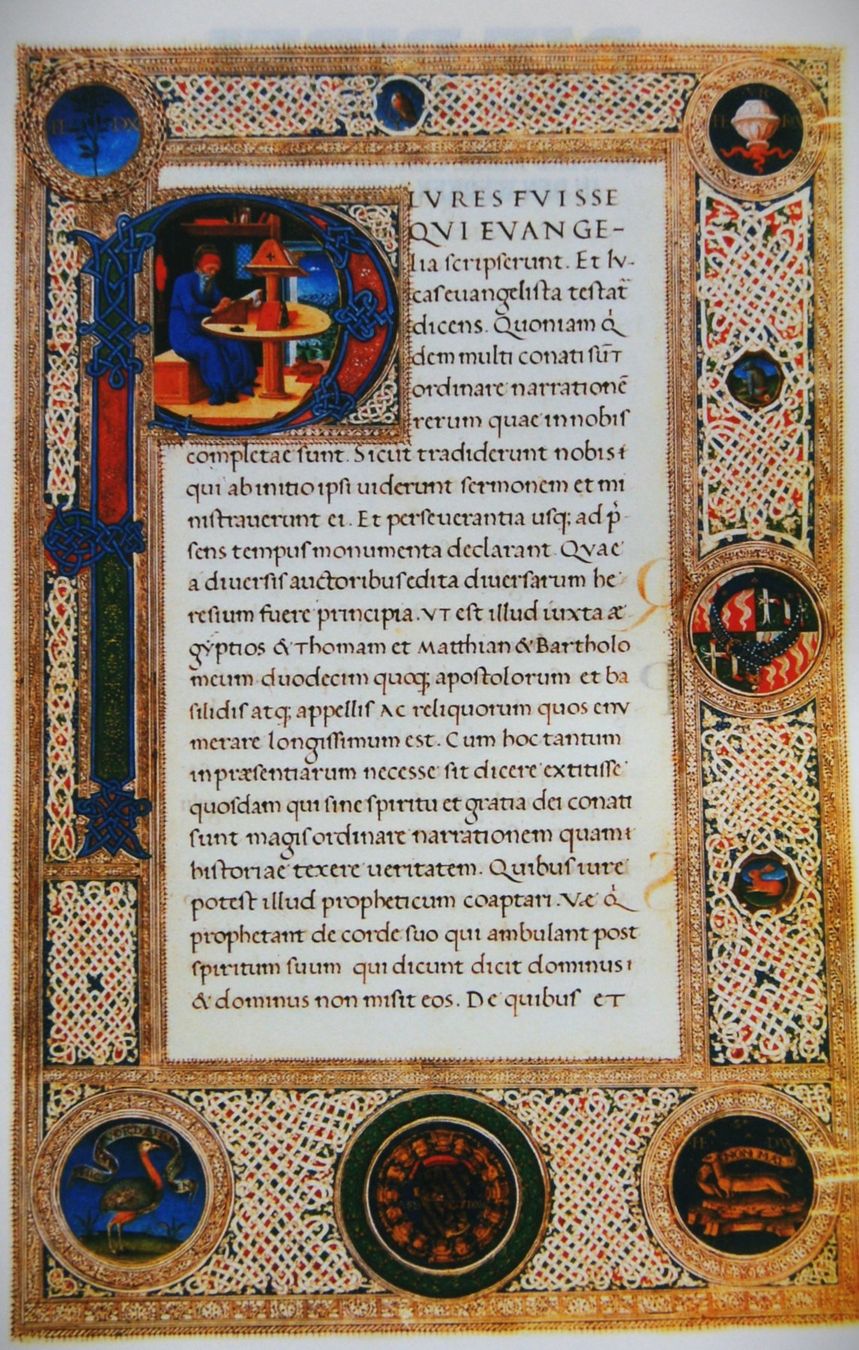 PLVRES FVISSE
QVI EVANGE-
lia scripserunt. Et lv-
cas euangelista testat̄
dicens. Quoniam q̓
dem multi conati sūt
ordinare narrationē
rerum quae in nobis
completae sunt. Sicut tradiderunt nobis i
qui ab initio ipsi uiderunt sermonem et mi
nistrauerunt ei. Et perseuerantia usq; ad p̓-
sens tempus monumenta declarant. Quae
a diuersis auctoribus edita diuersarum he
resium fuere principia. VT est illud iuxta æ
gyptios & Thomam et Matthian & Bartholo
meum duodecim quoq; apostolorum et ba
silidis atq; appellis Ac reliquorum quos env
merare longissimum est. Cum hoc tantum
in præsentiarum necesse sit dicere extitisse
quosdam qui sine spiritu et gratia dei conati
sunt magis ordinare narrationem quam i
historiae texere ueritatem. Quibus iure
potest illud propheticum coaptari. Væ q̓
prophetant de corde suo qui ambulant post
spiritum suum qui dicunt dicit dominus i
& dominus non misit eos. De quibus et
FE DX
NON MAI